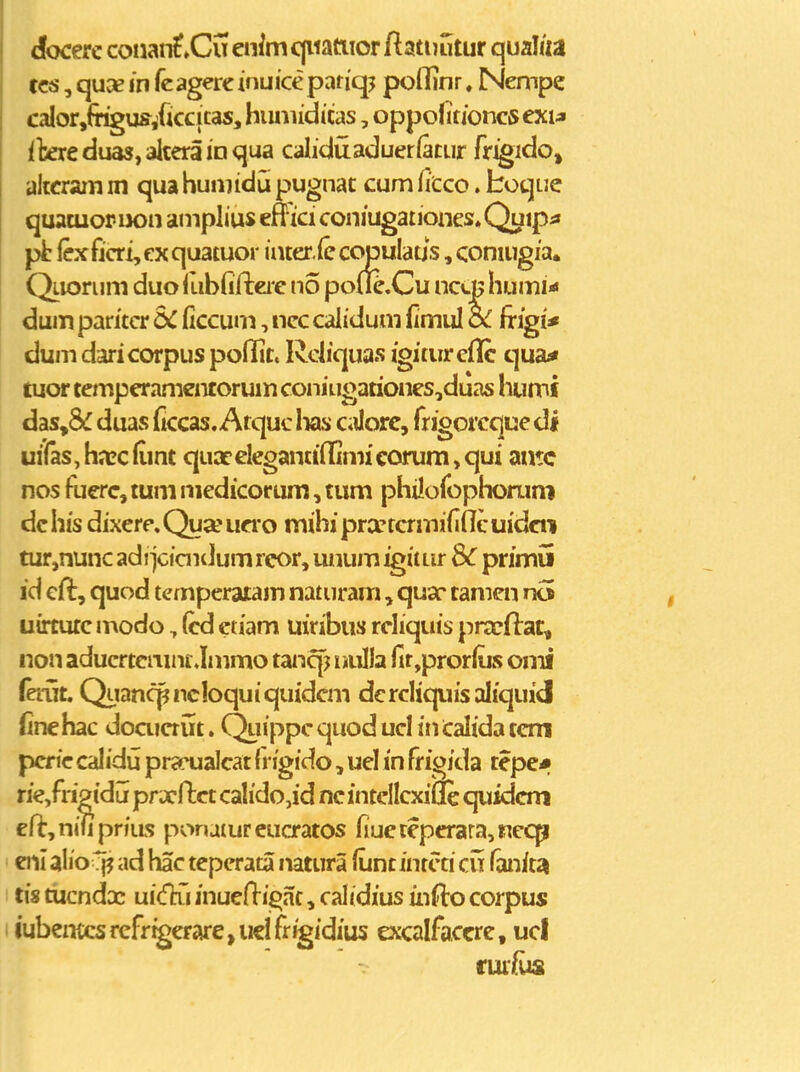 docere conant̃.Cũ enim quatuor ſtatuũtur qualita
tes, quæ in ſe agere inuicẽ patiq; poſſint. Nempe
calor, frigus, ſiccitas, humiditas, oppoſitiones exi-
ſtere duas, alterã in qua calidũ aduerſatur frigido,
alteram in qua humidũ pugnat cum ſicco. Eoque
quatuor non amplius effici coniugationes. Quip-
pe ſex fieri, ex quatuor inter ſe copulatis, coniugia.
Quorum duo ſubſiſtere nõ poſſe. Cũ neq; humi-
dum pariter & ſiccum, nec calidum ſimul & frigi-
dum dari corpus poſſit. Reliquas igitur eſſe qua-
tuor temperamentorum coniugationes, duas humi
das, & duas ſiccas. Atque has calore, frigoreque di
uiſas, hæc ſunt quæ elegantiſſimi eorum, qui ante
nos fuere, tum medicorum, tum philoſophorum
de his dixere. Quæ uero mihi prætermiſiſſe uiden
tur, nunc adijciendum reor, unum igitur & primũ
id eſt, quod temperatam naturam, quæ tamen nõ
uirtute modo, ſed etiam uiribus reliquis præſtat,
non aduerterint. Immo tanq; nulla ſit, prorſus omi
ſerũt. Quanq; ne loqui quidem de reliquis aliquid
ſine hac docuerũt. Quippe quod uel in calida tem
perie calidũ præualeat frigido, uel in frigida tẽpe-
rie, frigidũ præſtet calido, id ne intellexiſſe quidem
eſt, niſi prius ponatur eucratos ſiue tẽperata, neq;
eni alio q; ad hãc tẽperatã naturã ſunt intẽti cũ ſanita
tis tuendæ uictũ inueſtigãt, calidius iuſto corpus
iubentes refrigerare, uel frigidius excalfacere, uel
rurſus